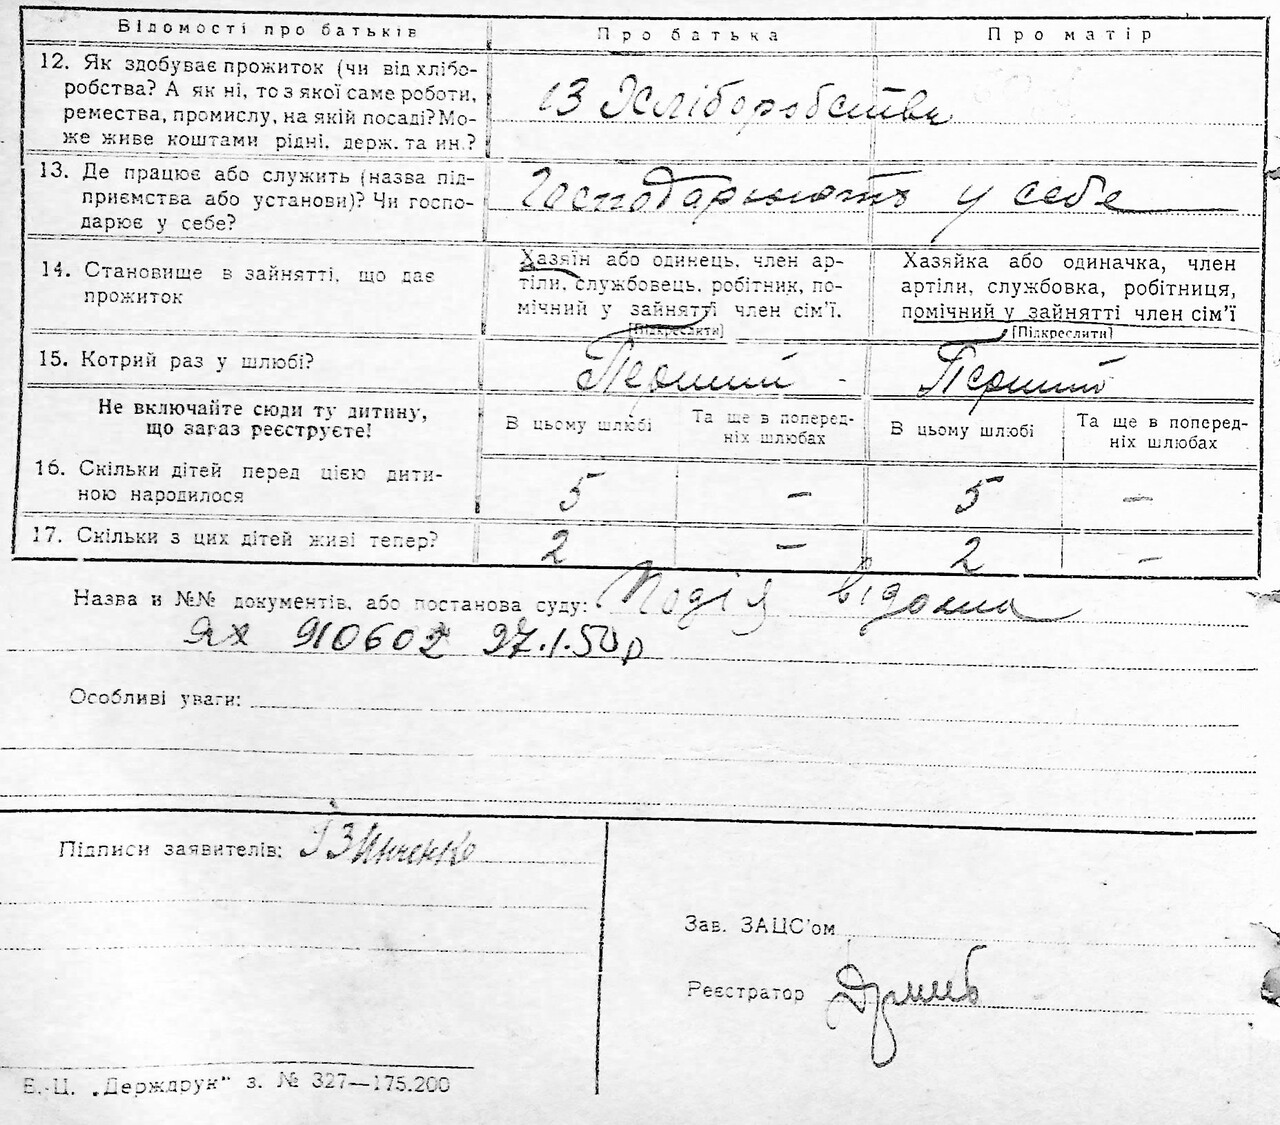 Відомості про батьків Про батька Про матір
12. Як здобуває прожиток (чи від хлібо-
робства? А як ні, то з якої саме роботи,
ремества, промислу, на якій посаді? Мо-
же живе коштами рідні, держ. та ин.?
із Хліборобства
13. Де працює або служить (назва під-
приємства або установи)? Чи госпо-
дарює у себе?
Господарюють у себе
14. Становище в зайнятті, що дає
прожиток
Хазяїн або одинець, член ар-
тіли, службовець, робітник, по-
мічний у зайнятті член сім'ї.
[Підкреслити]
Хазяйка або одиначка, член
артіли, службовка, робітниця,
помічний у зайнятті член сім'ї
[Підкреслити]
15. Котрий раз у шлюбі? Перший - Перший
Не включайте сюди ту дитину,
що зараз реєструєте!
В цьому шлюбі
Та ще в поперед-
ніх шлюбах
В цьому шлюбі
Та ще в поперед-
ніх шлюбах
16. Скільки дітей перед цією дити-
ною народилося
5 – 5 –
17. Скільки з цих дітей живі тепер? 2 – 2 –
Назва и №№ документів, або постанова суду: Подія відома
ЯХ 910602 27.1.50р
Особливі уваги:
Підписи заявителів: І Зінченко
Зав. ЗАЦС'ом
Реєстратор
Б.-Ц. „Держдрук" з. № 327—175.200